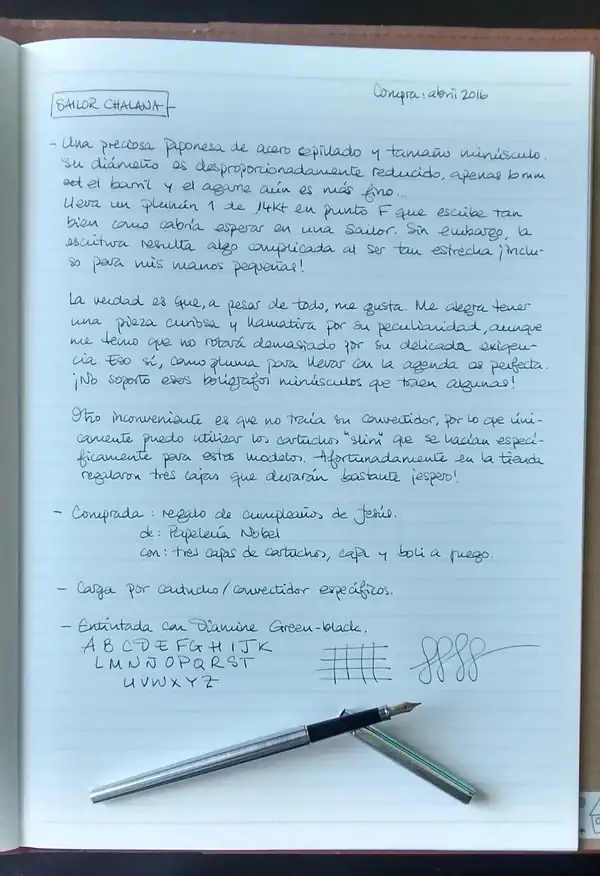 Compra: abril 2016
SAILOR CHALANA
- Una preciosa japonesa de acero cepillado y tamaño minúsculo.
Su diámetro es desproporcionadamente reducido, apenas 6 mm
el barril y el agarre aún es más fino...
Lleva un plumín 1 de 14Kt en punto F que escribe tan
bien como cabría esperar en una Sailor. Sin embargo, la
escritura resulta algo complicada al ser tan estrecha ¡inclu-
so para mis manos pequeñas!
La verdad es que, a pesar de todo, me gusta. Me alegra tener
una pieza curiosa y llamativa por su peculiaridad, aunque
me temo que no rotará demasiado por su delicada exigen-
cia. Eso sí, como pluma para llevar con la agenda es perfecta.
¡No soporto esos bolígrafos minúsculos que traen algunas!
Otro inconveniente es que no traía su convertidor, por lo que úni-
camente puedo utilizar los cartuchos "slim" que se hacían especí-
ficamente para estos modelos. Afortunadamente en la tienda
regalaron tres cajas que durarán bastante ¡espero!
- Comprada: regalo de cumpleaños de Jesús.
de: Papelería Nobel
con: tres cajas de cartuchos, caja y boli a juego.
- Carga por cartucho/convertidor específicos.
- Entintada con Diamine Green-black.
A B C D E F G H I J K
L M N Ñ O P Q R S T
U V W X Y Z